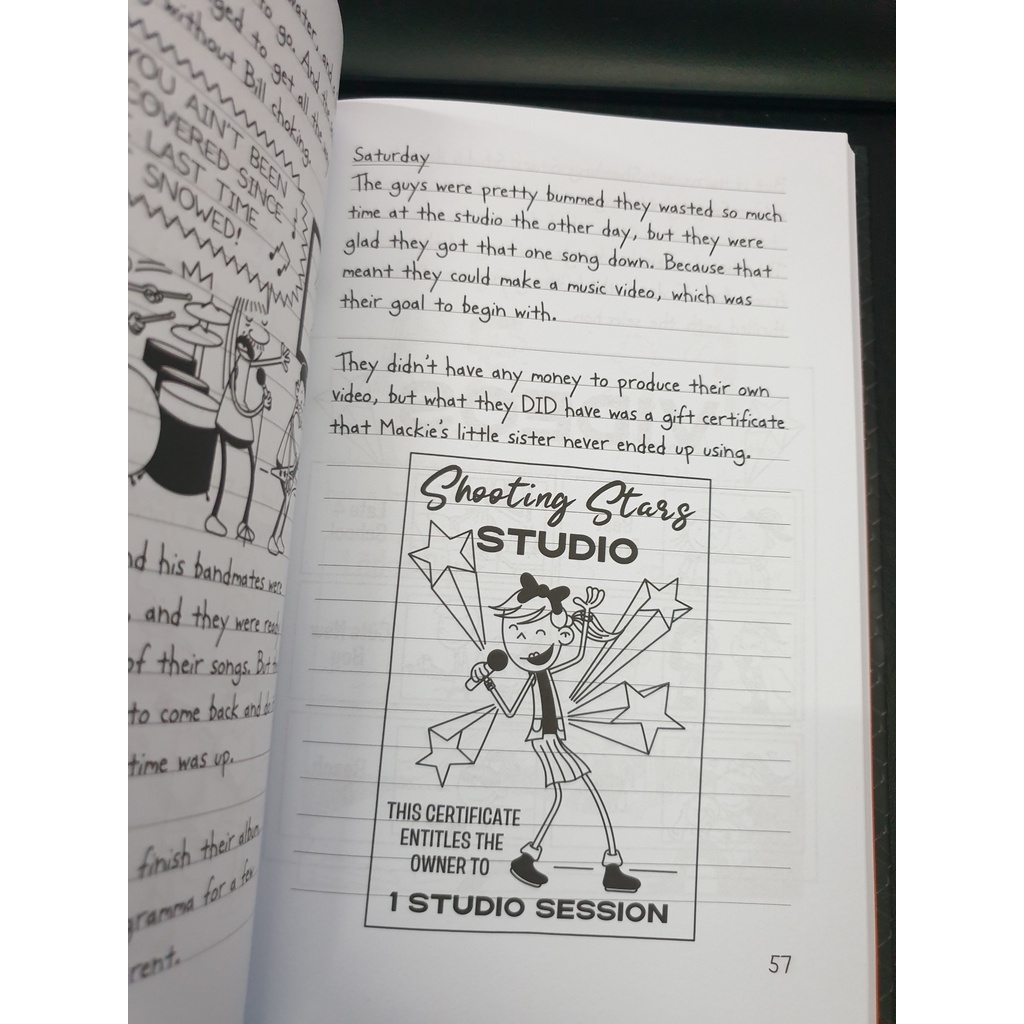 water, and
to go. And the
ged to get all the
without Bill choking.
YOU AIN'T BEEN
COVERED SINCE
LAST TIME
SNOWED!
his bandmates were
and they were
of their songs.
to come back and
time was up.
finish their
for a few
rent.
Saturday
The guys were pretty bummed they wasted so much
time at the studio the other day, but they were
glad they got that one song down. Because that
meant they could make a music video, which was
their goal to begin with.
They didn't have any money to produce their own
video, but what they DID have was a gift certificate
that Mackie's little sister never ended up using.
Shooting Stars
STUDIO
THIS CERTIFICATE
ENTITLES THE
OWNER TO
1 STUDIO SESSION
57